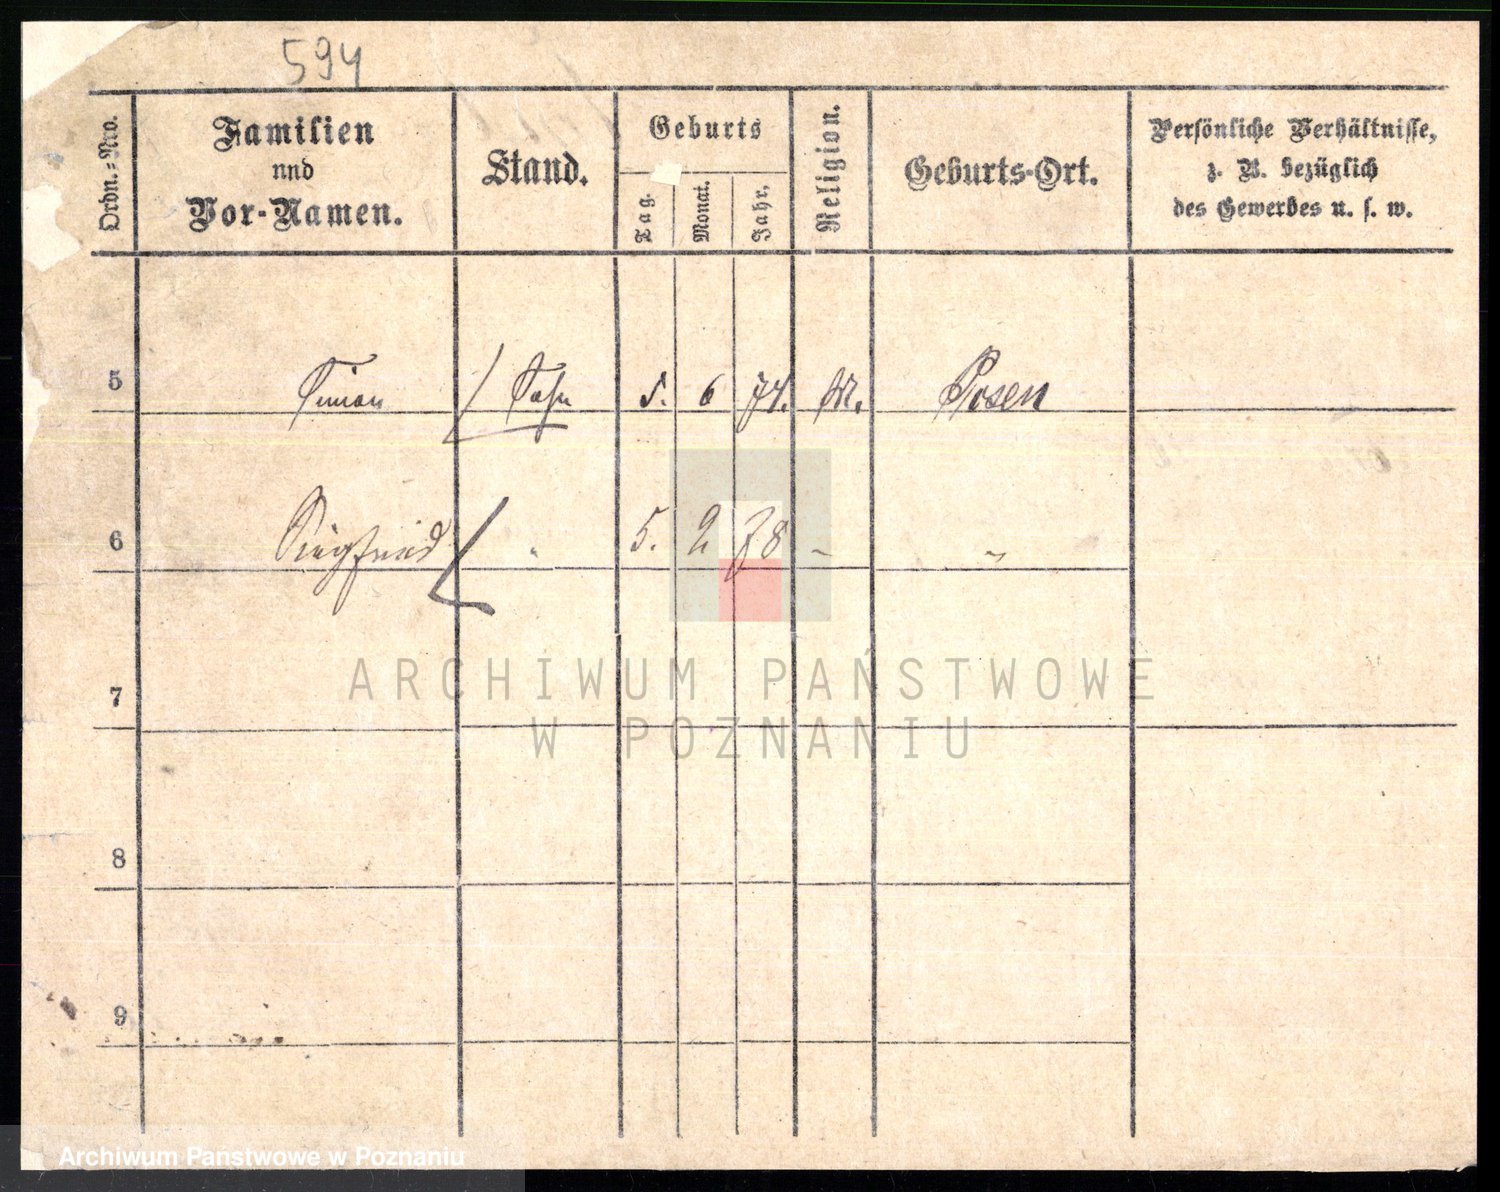 594
Ordn.-Nro.
Familien
und
Vor-Namen.
Stand.
Geburts
Tag.
Monat.
Jahr.
Religion.
Geburts-Ort.
Persönliche Verhältnisse,
z. B. bezüglich
des Gewerbes u. s. w.
5 Simon Sohn 5. 6 74. M. Posen
6 Siegfried " 5. 2 78 - "
7
8
9
ARCHIWUM PAŃSTWOWE
W POZNANIU
Archiwum Państwowe w Poznaniu